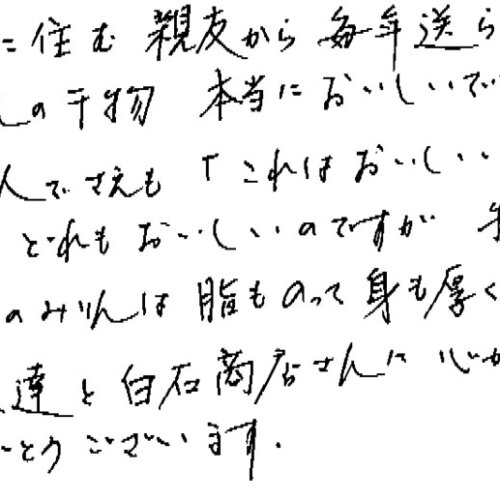 に住む 親友から 毎年送ら
の干物 本当においしいで
人でさえも「これはおいしい
どれもおいしいのですが
のみりんは 脂ものって身も厚く
達と白石商店さんに 心か
とうございます.